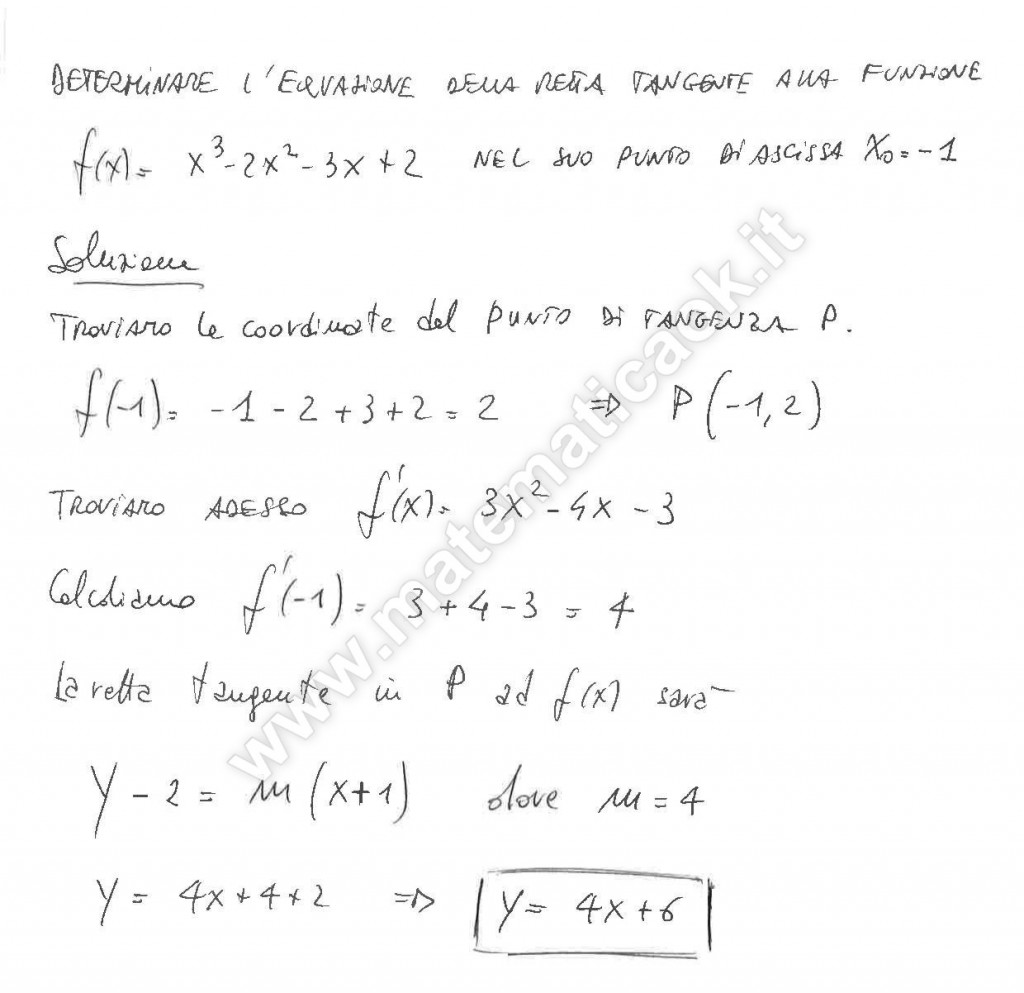 DETERMINARE L'EQUAZIONE DELLA RETTA TANGENTE ALLA FUNZIONE
f(x)= x³-2x²-3x+2 NEL SUO PUNTO DI ASCISSA X₀=-1
Soluzione
TROVIAMO le coordinate del PUNTO DI TANGENZA P.
f(-1)= -1-2+3+2=2 => P(-1,2)
TROVIAMO ADESSO f'(x)= 3x²-4x-3
Calcoliamo f'(-1)= 3+4-3=4
La retta tangente in P ad f(x) sarà
Y-2= m(x+1) dove m=4
Y= 4x+4+2 => Y= 4x+6
www.matematicaok.it